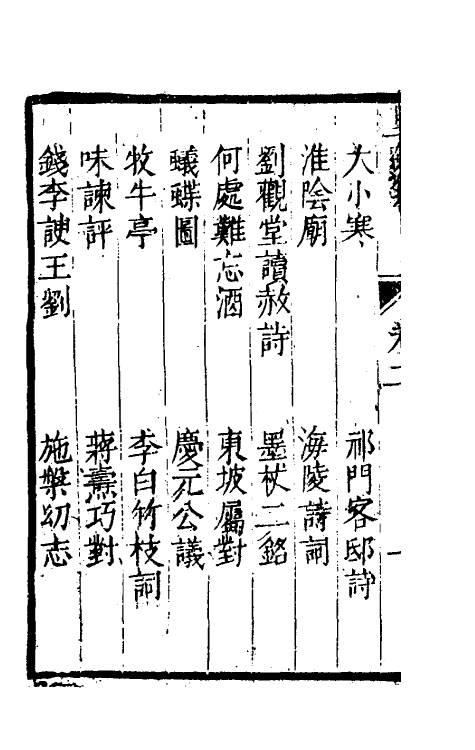 卷二
大小寒　祁門客邸詩
淮陰廟　海陵詩詞
劉觀堂讀赦詩　墨杖二銘
何處難忘酒　東坡屬對
蟻蝶圖　慶元公議
牧牛亭　李白竹枝詞
味諫評　蔣燾巧對
錢李諛王劉　施槃幼志